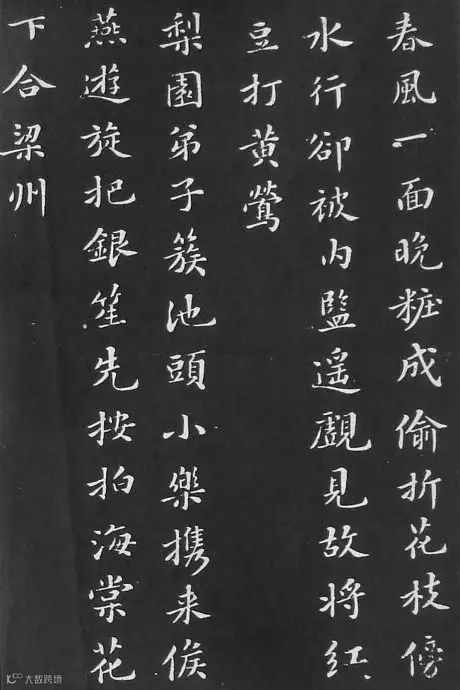 春風一面晚粧成偷折花枝傍
水行卻被内監遥覰見故将紅
豆打黄鶯
梨園弟子簇池頭小樂携来俟
燕遊旋把銀笙先按拍海棠花
下合梁州
大数跨境